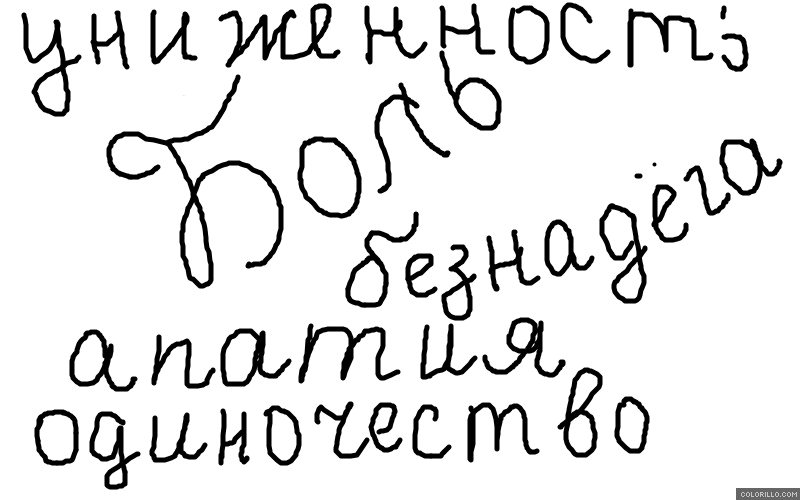 униженность
Боль
безнадёга
апатия
одиночество
COLORILLO.COM